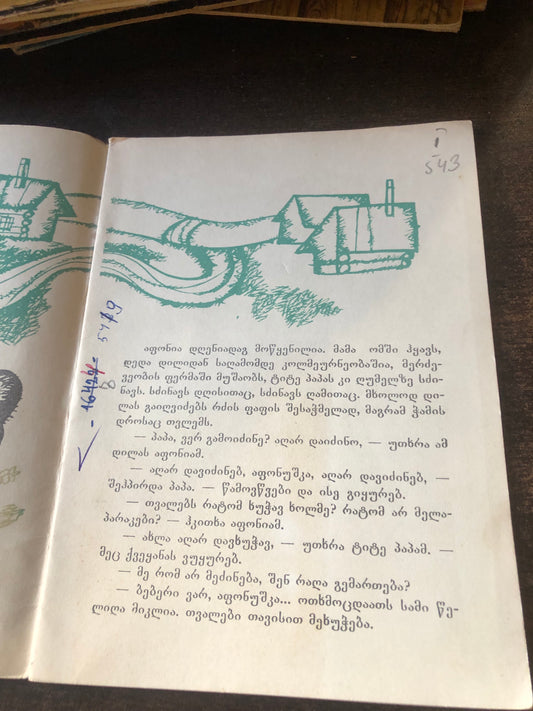 543
აფონია დღენიადაგ მოწყენილია. მამა ომში ჰყავს,
დედა დილიდან საღამომდე კოლმეურნეობაშია, მერძე-
ვეობის ფერმაში მუშაობს, ტიტე პაპას კი ღუმელზე სძი-
ნავს. სძინავს დღისითაც, სძინავს ღამითაც. მხოლოდ დი-
ლას გაიღვიძებს რძის ფაფის შესაჭმელად, მაგრამ ჭამის
დროსაც თვლემს.
— პაპა, ვერ გამოიძინე? აღარ დაიძინო, — უთხრა ამ
დილას აფონიამ.
— აღარ დავიძინებ, აფონუშკა, აღარ დავიძინებ, —
შეჰპირდა პაპა. — წამოვწვები და ისე გიყურებ.
— თვალებს რატომ ხუჭავ ხოლმე? რატომ არ მელა-
პარაკები? — ჰკითხა აფონიამ.
— ახლა აღარ დავხუჭავ, — უთხრა ტიტე პაპამ. —
მეც ქვეყანას ვუყურებ.
— მე რომ არ მეძინება, შენ რაღა გემართება?
— ბებერი ვარ, აფონუშკა... ოთხმოცდაათს სამი წე-
ლიღა მიკლია. თვალები თავისით მეხუჭება.